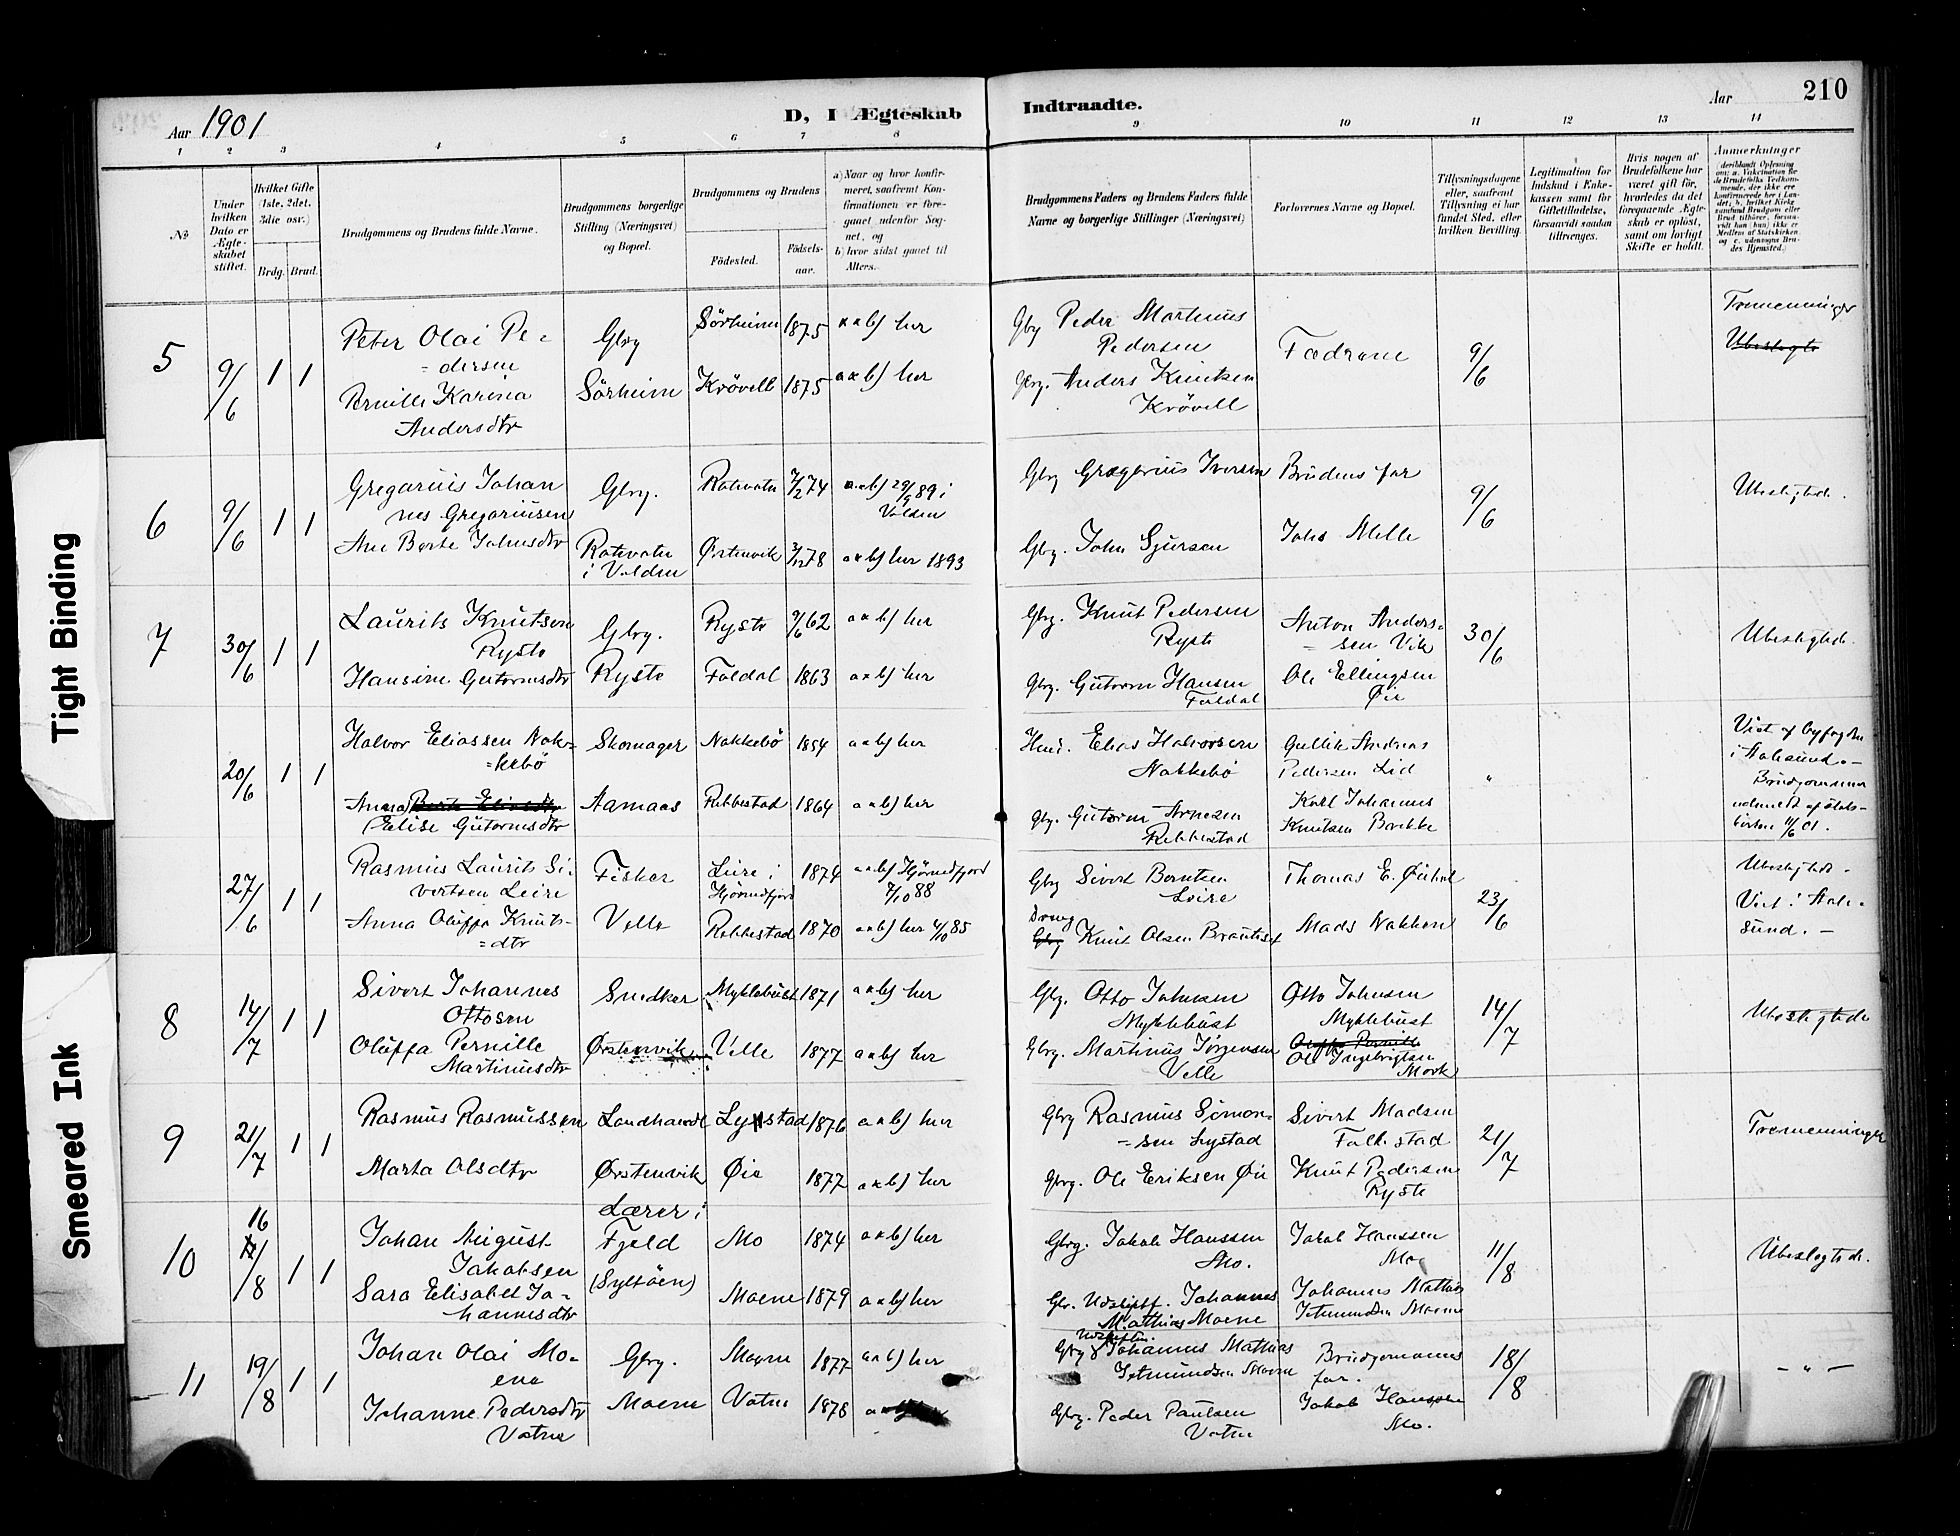 Aar 1901
D, I Ægteskab
Indtraadte.
Aar
210
1 2 3 4 5 6 7 8 9 10 11 12 13 14
No
Under hvilken Dato er Ægteskabet stiftet.
Hvilket Gifte (1ste, 2det, 3die osv.)
Brdg. Brud.
Brudgommens og Brudens fulde Navne.
Brudgommens borgerlige Stilling (Næringsvei) og Bopæl.
Brudgommens og Brudens
Födested.
Födselsaar.
a) Naar og hvor konfirmeret, saafremt Konfirmationen er foregaaet udenfor Sognet, og
b) hvor sidst gaaet til Alters.
Brudgommens Faders og Brudens Faders fulde Navne og borgerlige Stillinger (Næringsvei)
Forlovernes Navne og Bopæl.
Tillysningsdagene eller, saafremt Tillysning ei har fundet Sted, efter hvilken Bevilling.
Legitimation for Indskud i Enkekassen samt for Giftetilladelse, forsaavidt saadan tiltrænges.
Hvis nogen af Brudefolkene har været gift för, hvorledes da det foregaaende Ægteskab er oplöst, samt om lovligt Skifte er holdt.
Anmerkninger
5
9/6
1 1
Peter Olai Pe-
=dersen
Pernille Karina
Andersdtr
Gbrg
Sørheim
Sørheim
Krövell
1875
1875
a x b) her
a x b) her
Gbrg Peder Martinus
Pedersen
Gbrg. Anders Knutsen
Krövell
Fædrene
9/6
Tremenninger
Ubeslegte
6
9/6
1 1
Gregorius Johan
nes Gregoriusen
Ane Berte Johnsdtr
Gbrg.
Rotevatn
i Volden
Rotevatn
Ørstenvik
7/2 74
3/12 78
a x b) 29/9 89 i
Volden
a x b) her 1893
Gbrg Gregorius Iversen
Gbrg. John Sjursen
Brudens far
Johs Melle
9/6
Ubeslegtede.
7
30/6
1 1
Laurits Knutsen
Ryste
Hansine Gutormsdtr
Gbrg.
Ryste
Ryste
Foldal
9/6 62
1863
a x b) her
a x b) her
Gbrg. Knut Pedersen
Ryste
Gbrg. Gutorm Hansen
Foldal
Anton Anders-
=sen Vik
Ole Ellingsen
Øie
30/6
Ubeslegtede.
20/6
1 1
Halvor Eliassen Nok-
=kebö
Anna Berte Eliasdtr
Elise Gutormsdtr
Skomager
Aamaas
Nakkebö
Rebbestad
1854
1864
a x b) her
a x b) her
Elias Halvorsen
Nakkebö
Gbrg. Gutorm Arnesen
Rebbestad
Gullik Andreas
Pedersen Lid
Karl Johannes
Knutsen Bakke
"
Viet af byfogden
i Aalesund.-
Brudgommen
udmeldt af stats-
kirken 11/6 01.
27/6
1 1
Rasmus Laurits Si-
vertsen Leire
Anna Oluffa Knuts-
=dtr
Fisker
Velle
Leire i
Hjörundfjord
Rebbestad
1874
1870
a x b) Hjörundfjord
7/10 88
a x b) her 4/10 85
Gbrg Sivert Berntsen
Leire
Gbrg Knut Olsen
Thomas E. Øihol
Mads Nakken
23/6
Ubeslegtede.
Viet i Aale-
sund. -
8
14/7
1 1
Sivert Johannes
Ottosen
Oluffa Pernille
Martinusdtr
Snedker
Ørstenvik
Myklebust
Velle
1871
1877
a x b) her
a x b) her
Gbrg. Otto Johnsen
Myklebust
Gbrg. Martinus Jørgensen
Velle
Otto Johnsen
Myklebust
Oluffa Pernille
Ole Ingebrigtsen
Mork
14/7
Ubeslegtede
9
21/7
1 1
Rasmus Rasmussen
Marta Olsdtr
Landhandl
Ørstenvik
Lystad
Øie
1876
1877
a x b) her
a x b) her
Gbrg Rasmus Simon-
=sen Lystad
Gbrg. Ole Eriksen Øie
Sivert Madsen
Folkestad
Knut Pedersen
Ryste
21/7
Tremenninger
10
16
/8
1 1
Johan August
Jakobsen
Sara Elisabet Jo-
hannesdtr
Lærer i
Fjeld
(Syltöen)
Mo
Moene
1874
1879
a x b) her
a x b) her
Gbrg. Jakob Hanssen
Mo.
Johannes
Mathias Moene
Jakob Hanssen
Mo
Johannes Mathias
Jetmundsen Moene
11/8
Ubeslegtede.
11
19/8
1 1
Johan Olai Mo-
ene
Johanne Pedersdtr
Vatne
Gbrg.
Moene
Moene
Vatne
1877
1878
a x b) her
a x b)
Gbrg Johannes Mathias
Jetmundsen Moene
Gbrg. Peder Paulsen
Vatne
Brudgommens
far.
Jakob Hanssen
Mo.
18/8
- " -
Tight Binding
Smeared Ink